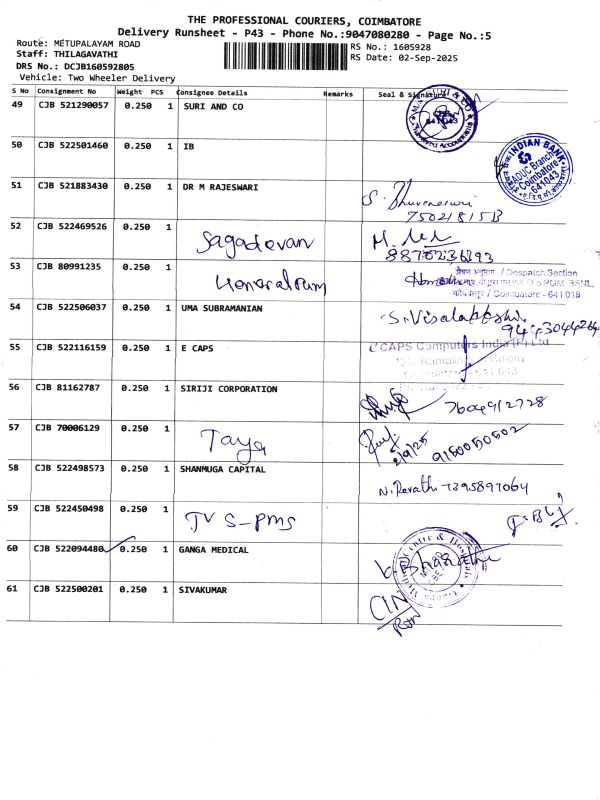 THE PROFESSIONAL COURIERS, COIMBATORE
Delivery Runsheet - P43 - Phone No.:9047080280 - Page No.:5
Route: METUPALAYAM ROAD
Staff: THILAGAVATHI
DRS No.: DCJB160592805
Vehicle: Two Wheeler Delivery
RS No.: 1605928
RS Date: 02-Sep-2025
S No Consignment No Weight PCS Consignee Details Remarks Seal & Signature
49 CJB 521290057 0.250 1 SURI AND CO
641043
50 CJB 522501460 0.250 1 IB
INDIAN BANK
PADUC Branch
Coimbatore
641043
51 CJB 521883430 0.250 1 DR M RAJESWARI
S. Bhuvaneswari
52 CJB 522469526 0.250 1 Sagadevan
53 CJB 80991235 0.250 1
/ Despatch Section
O/o PGM, BSNL,
/ Coimbatore - 641 018
54 CJB 522506037 0.250 1 UMA SUBRAMANIAN
S. Visalakkshi
55 CJB 522116159 0.250 1 E CAPS
CAPS Computers India (P) Ltd
56 CJB 81162787 0.250 1 SIRIJI CORPORATION
7604912728
57 CJB 70006129 0.250 1 Taya
2/9/25
9150050502
58 CJB 522498573 0.250 1 SHANMUGA CAPITAL
N. Revathi 7395897064
59 CJB 522450498 0.250 1 TVS-PMS
60 CJB 522094480 0.250 1 GANGA MEDICAL
61 CJB 522500201 0.250 1 SIVAKUMAR